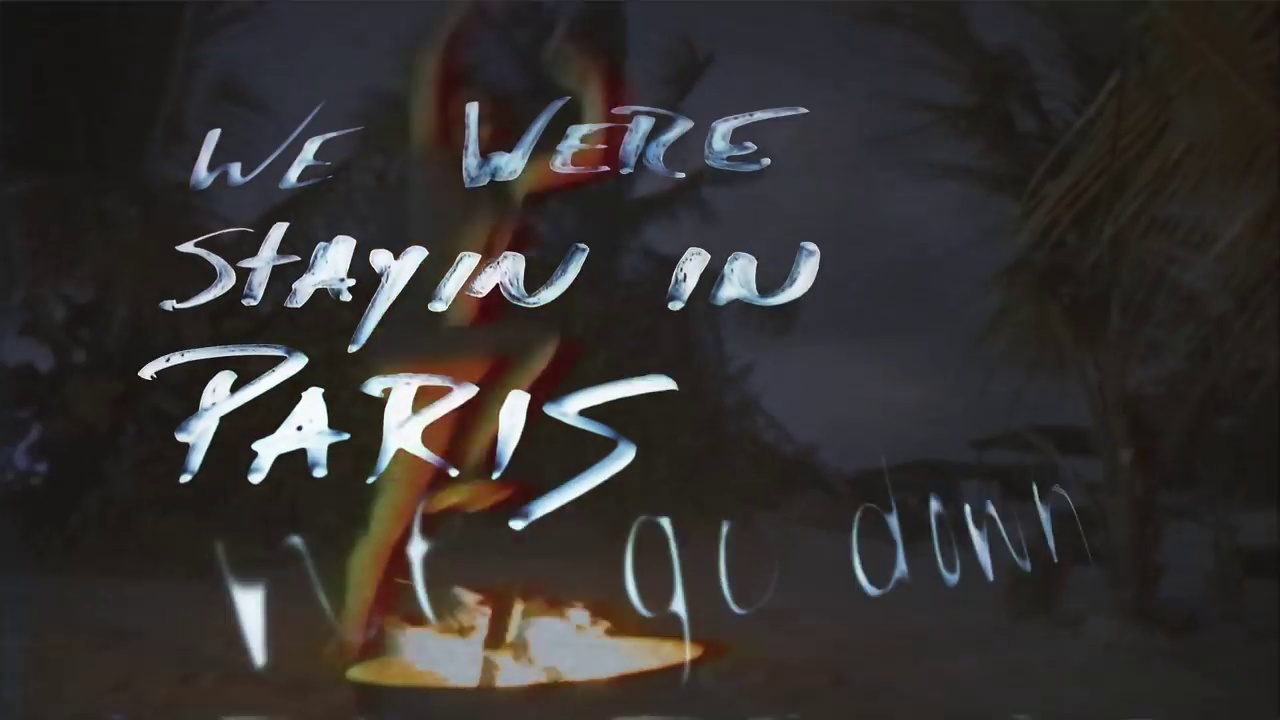 WE WERE
StAYIN IN
PARIS
we go down